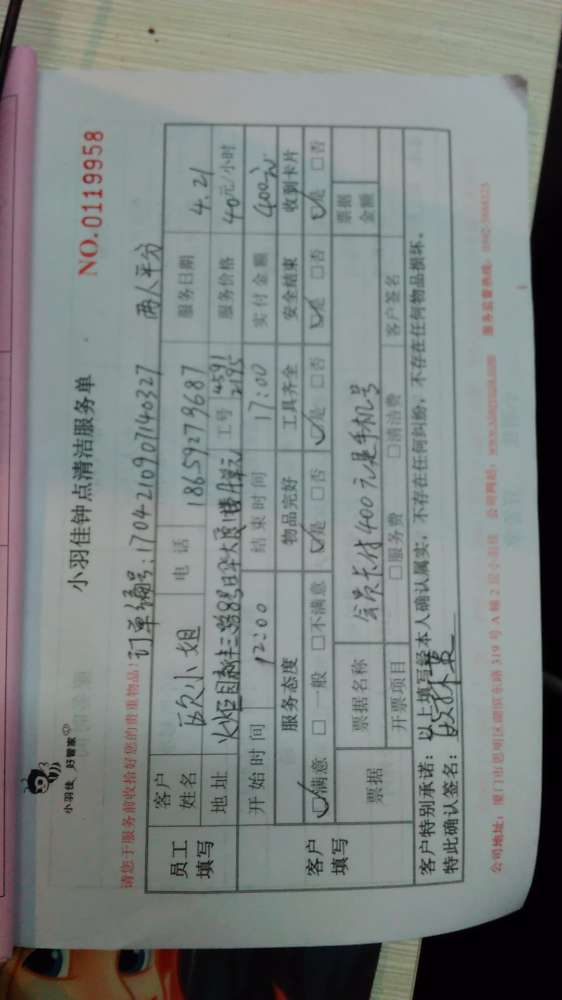 小羽佳 好管家
小羽佳钟点清洁服务单
NO.0119958
请您于服务前收拾好您的贵重物品!
订单编号:1704210907140327 两人平分
员工填写
客户姓名 欧小姐 电话 18659279687 服务日期 4.21
地址 火炬园新丰三路8号日华大厦1楼A单元 工号 4591 2195 服务价格 40元/小时
开始时间 12:00 结束时间 17:00 实付金额 400元
客户填写
服务态度 物品完好 工具齐全 安全结束 收到卡片
☑满意 □一般 □不满意 ☑是 □否 ☑是 □否 ☑是 □否 ☑是 □否
票据 票据名称 会员卡付400元是手机号 票据金额
开票项目 □服务费 □清洁费 客户签名
客户特别承诺:以上填写经本人确认属实,不存在任何纠纷,不存在任何物品损坏。
特此确认签名:
公司地址:厦门市思明区湖滨东路319号A幢2层小羽佳 公司网站: 服务监督热线: